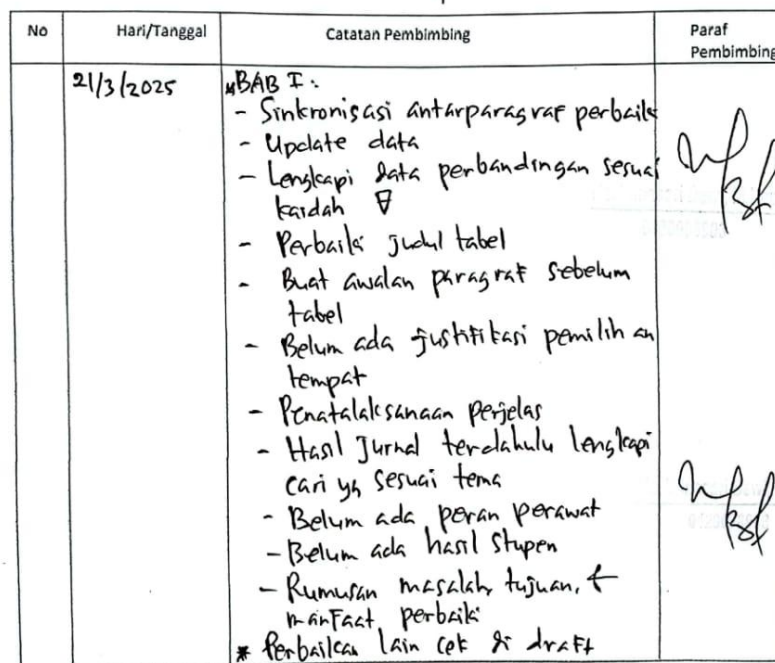 No Hari/Tanggal Catatan Pembimbing Paraf
Pembimbing
21/3/2025 BAB I:
- Sinkronisasi antarparagraf perbaiki
- Update data
- Lengkapi data perbandingan sesuai
kaidah
- Perbaiki judul tabel
- Buat awalan paragraf sebelum
tabel
- Belum ada justifikasi pemilihan
tempat
- Penatalaksanaan perjelas
- Hasil Jurnal terdahulu lengkapi
cari yg sesuai tema
- Belum ada peran perawat
- Belum ada hasil stupen
- Rumusan masalah, tujuan,
manfaat perbaiki
* Perbaikan lain cek di draft